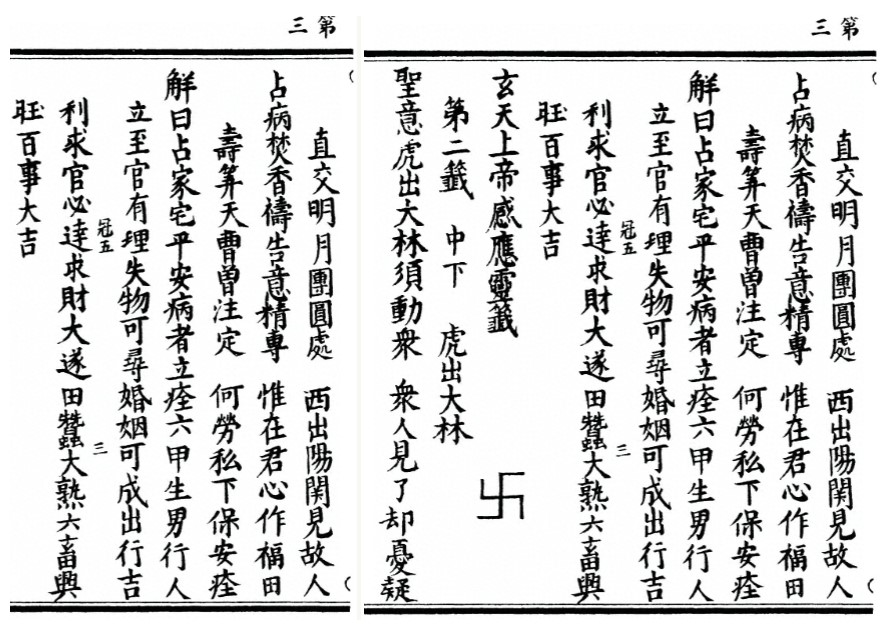 第三
直交明月團圓處　西出陽關見故人
占病焚香禱告意精專　惟在君心作福田
壽筭天曹曾注定　何勞私下保安痊
解曰占家宅平安病者立痊六甲生男行人
立至官有理失物可尋婚姻可成出行吉
冠五　三
利求官必達求財大遂田蠶大熟六畜興
旺百事大吉
玄天上帝感應靈籤　卐
第二籤　中下　虎出大林
聖意虎出大林須動衆　衆人見了却憂疑
第三
直交明月團圓處　西出陽關見故人
占病焚香禱告意精專　惟在君心作福田
壽筭天曹曾注定　何勞私下保安痊
解曰占家宅平安病者立痊六甲生男行人
立至官有理失物可尋婚姻可成出行吉
冠五　三
利求官必達求財大遂田蠶大熟六畜興
旺百事大吉